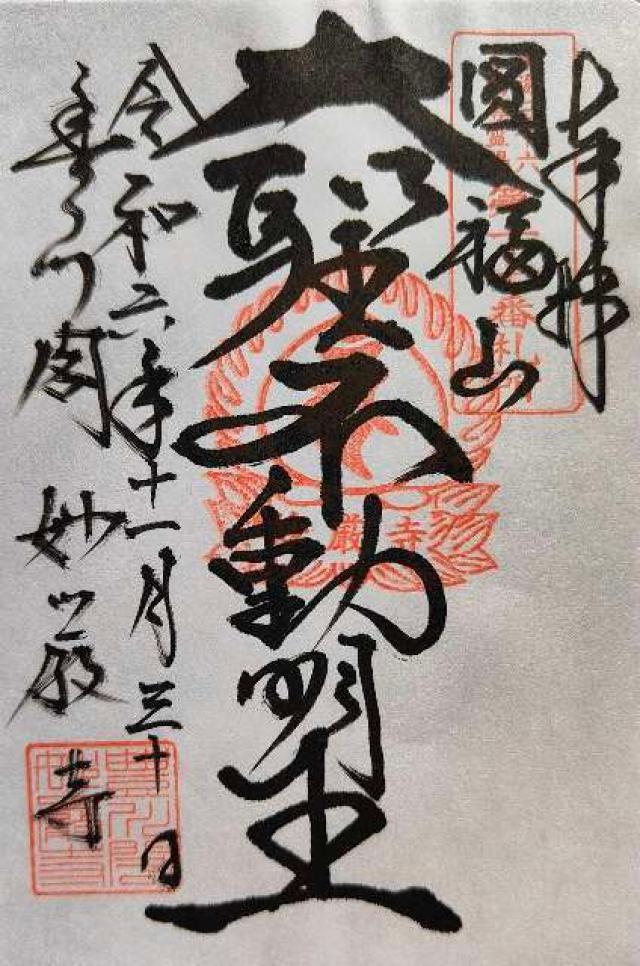 奉拜
圓福山
番札所
大聖不動明王
嚴寺
令和六年十一月三十日
豊川閣 妙嚴寺